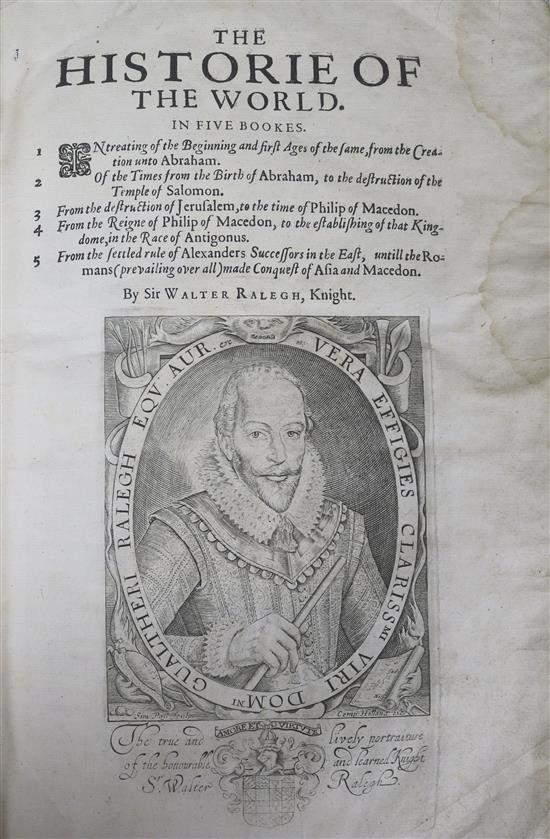 THE
HISTORIE OF
THE WORLD.
IN FIVE BOOKES.
1 INtreating of the Beginning and first Ages of the same, from the Crea-
tion unto Abraham.
2 Of the Times from the Birth of Abraham, to the destruction of the
Temple of Salomon.
3 From the destruction of Jerusalem, to the time of Philip of Macedon.
4 From the Reigne of Philip of Macedon, to the establishing of that King-
dome, in the Race of Antigonus.
5 From the settled rule of Alexanders Successors in the East, untill the Ro-
mans (prevailing over all) made Conquest of Asia and Macedon.
By Sir WALTER RALEGH, Knight.
VERA EFFIGIES CLARISSMI VIRI DOMINI GUALTHERI RALEGH EQV. AUR. etc
Sim Pass sculp.
Comp: Holland
AMORE ET VIRTUTE
The true and lively portraiture
of the honourable and learned Knight
Sr. Walter Ralegh.